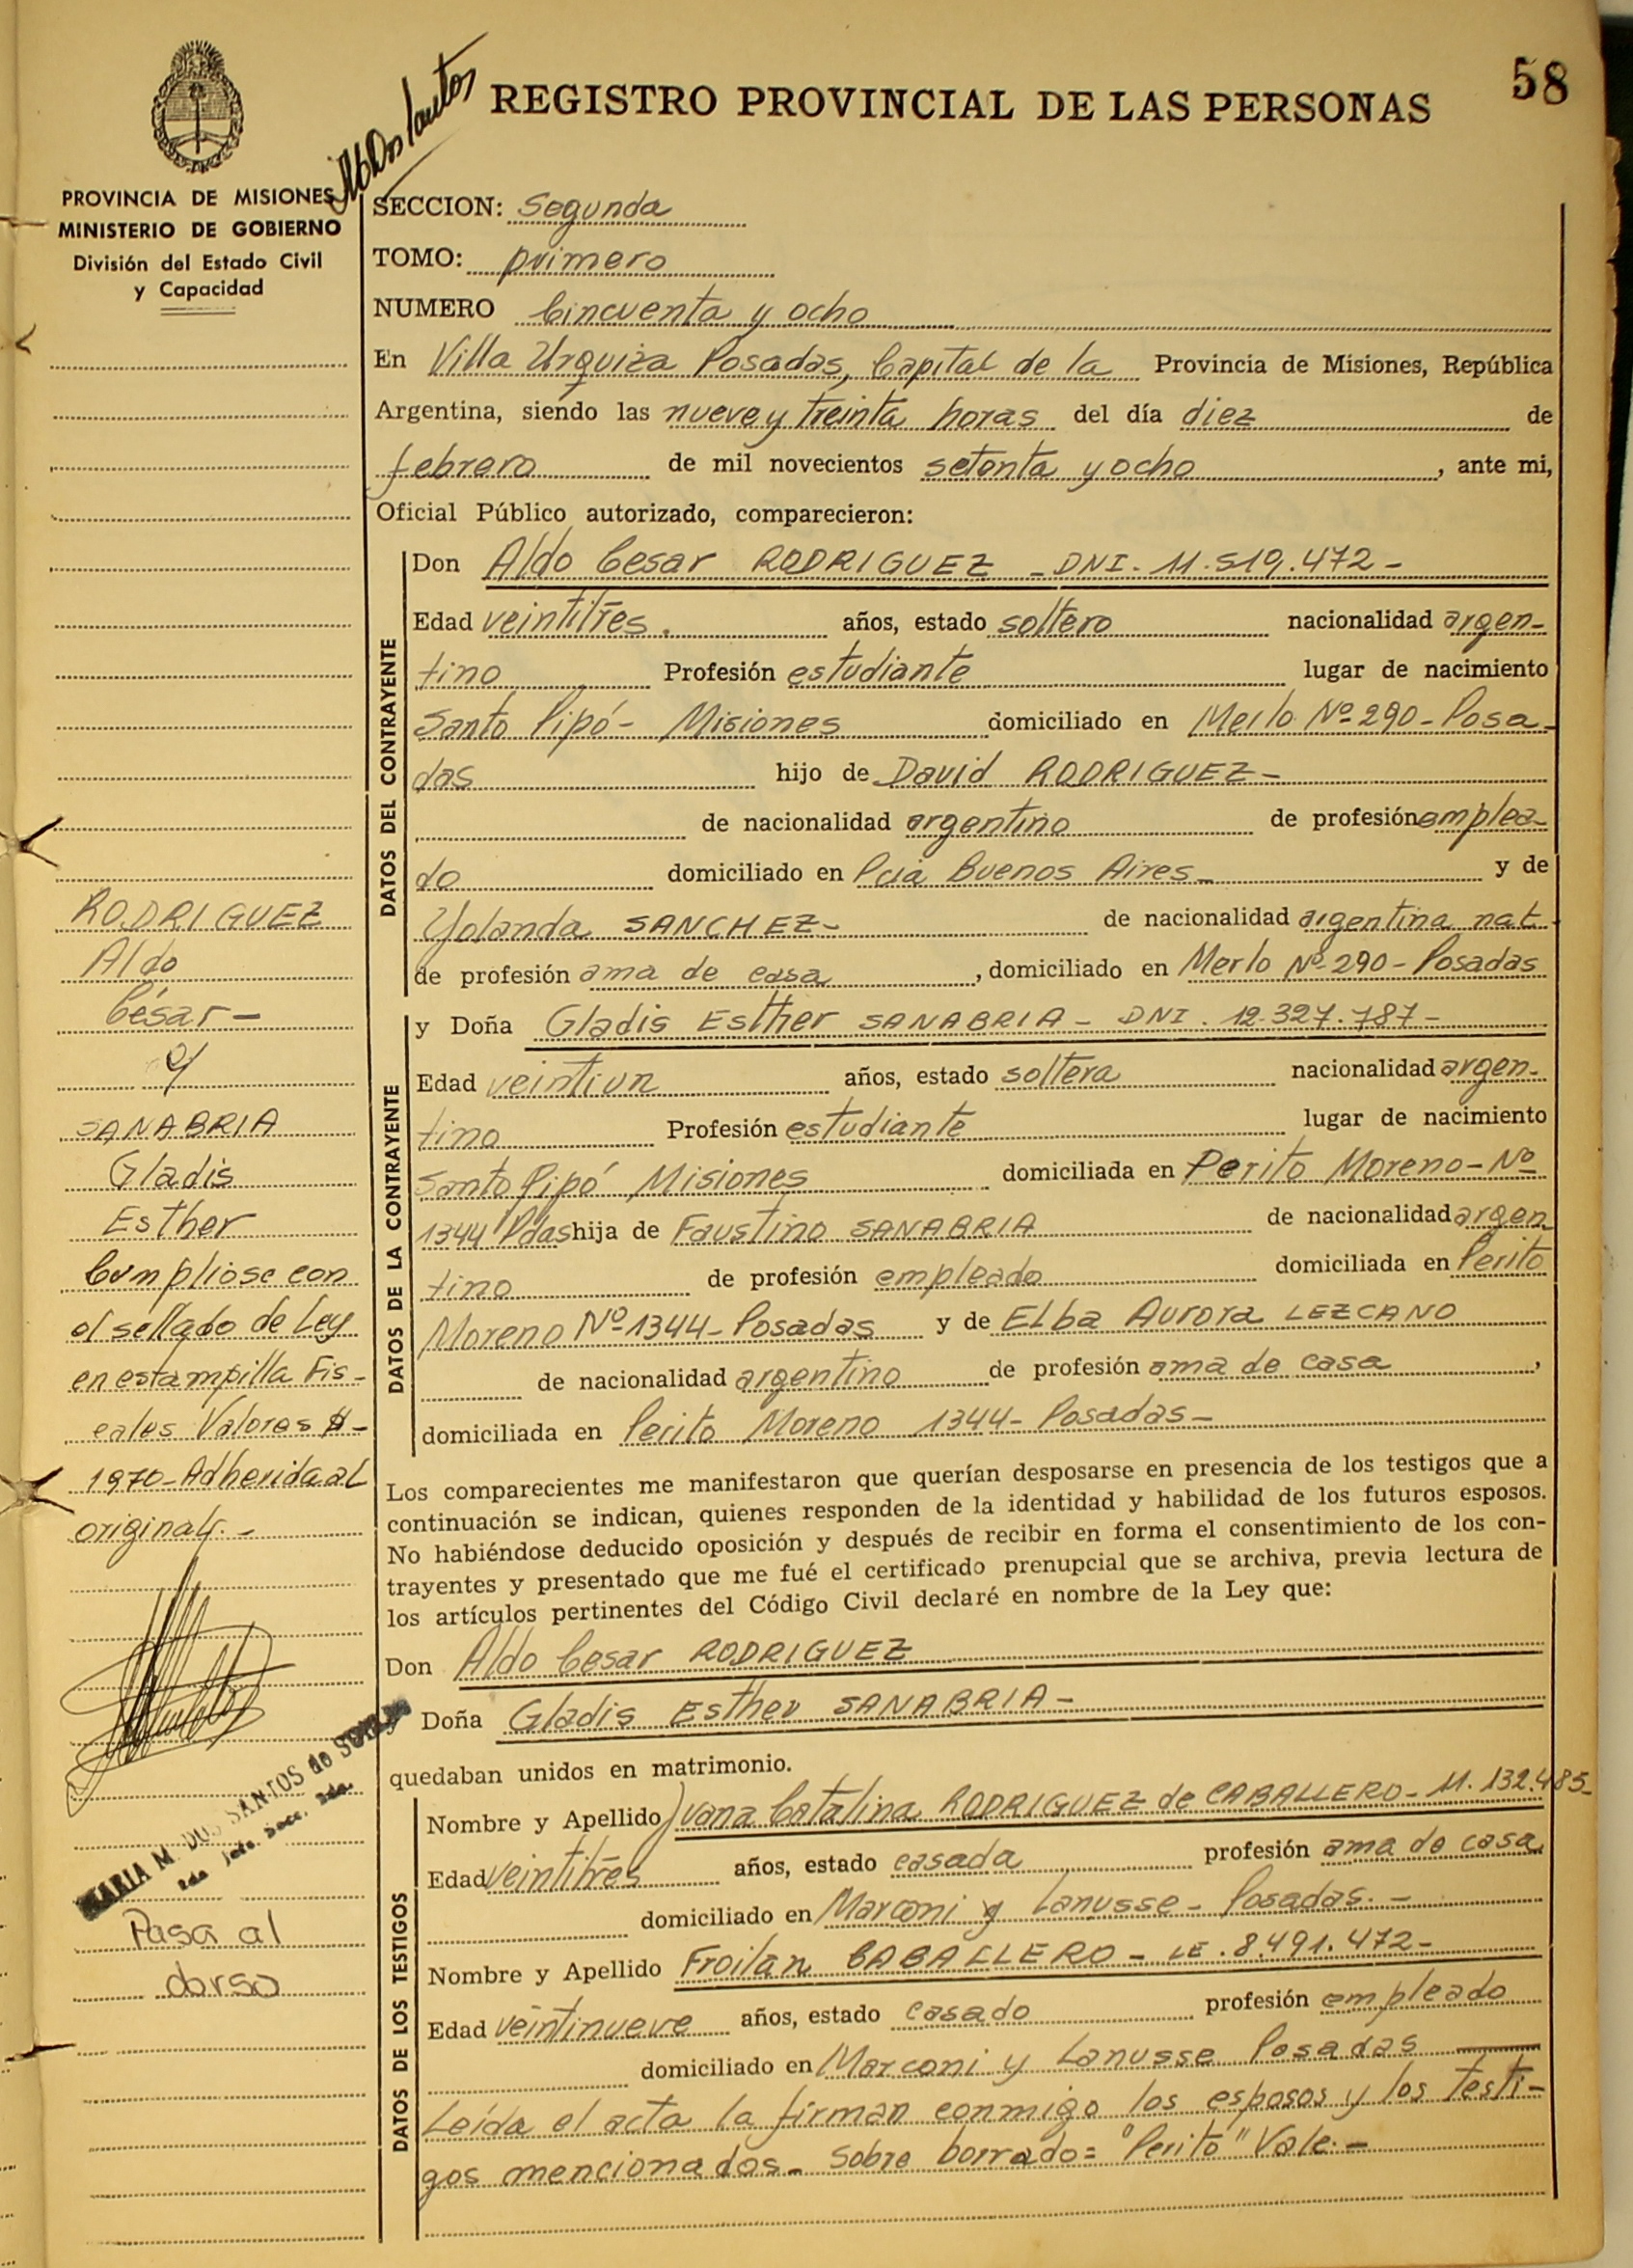 58
REGISTRO PROVINCIAL DE LAS PERSONAS
PROVINCIA DE MISIONES
MINISTERIO DE GOBIERNO
División del Estado Civil
y Capacidad
SECCION: Segunda
TOMO: primero
NUMERO Cincuenta y ocho
En Villa Urquiza Posadas, Capital de la Provincia de Misiones, República
Argentina, siendo las nueve y treinta horas del día diez de
febrero de mil novecientos setenta y ocho, ante mi,
Oficial Público autorizado, comparecieron:
DATOS DEL CONTRAYENTE
Don Aldo Cesar RODRIGUEZ - DNI. 11.519.472-
Edad veintitres. años, estado soltero nacionalidad argen-
tino Profesión estudiante lugar de nacimiento
Santo Pipó - Misiones domiciliado en Merlo Nº 290 - Posa-
das hijo de David RODRIGUEZ-
de nacionalidad argentino de profesión emplea-
do domiciliado en Pcia Buenos Aires - y de
Yolanda SANCHEZ- de nacionalidad argentina nat.
de profesión ama de casa, domiciliado en Merlo Nº 290 - Posadas
DATOS DE LA CONTRAYENTE
y Doña Gladis Esther SANABRIA - DNI. 12.327.787-
Edad veintiun años, estado soltera nacionalidad argen-
tina Profesión estudiante lugar de nacimiento
Santo Pipó Misiones domiciliada en Perito Moreno - Nº
1344 Pdas hija de Faustino SANABRIA de nacionalidad argen
tino de profesión empleado domiciliada en Perito
Moreno Nº 1344 - Posadas y de Elba Aurora LEZCANO
de nacionalidad argentino de profesión ama de casa,
domiciliada en Perito Moreno 1344 - Posadas -
Los comparecientes me manifestaron que querían desposarse en presencia de los testigos que a
continuación se indican, quienes responden de la identidad y habilidad de los futuros esposos.
No habiéndose deducido oposición y después de recibir en forma el consentimiento de los con-
trayentes y presentado que me fué el certificado prenupcial que se archiva, previa lectura de
los artículos pertinentes del Código Civil declaré en nombre de la Ley que:
Don Aldo Cesar RODRIGUEZ
y Doña Gladis Esther SANABRIA -
quedaban unidos en matrimonio.
DATOS DE LOS TESTIGOS
Nombre y Apellido Juana Catalina RODRIGUEZ de CABALLERO - 11.132.485-
Edad veintitres años, estado casada profesión ama de casa
domiciliado en Marconi y Lanusse - Posadas. -
Nombre y Apellido Froilan CABALLERO - LE. 8.491.472-
Edad veintinueve años, estado casado profesión empleado
domiciliado en Marconi y Lanusse Posadas
Leída el acta la firman conmigo los esposos y los testi-
gos mencionados - Sobre borrado = "Perito" Vale. -
RODRIGUEZ
Aldo
César -
y
SANABRIA
Gladis
Esther
Cumpliose con
el sellado de Ley
en estampilla Fis-
cales Valores $ -
1970 - Adherida al
original. -
MARIA M. DOS SANTOS de
2da Jefa. Secc. 2da.
Pasa al
dorso